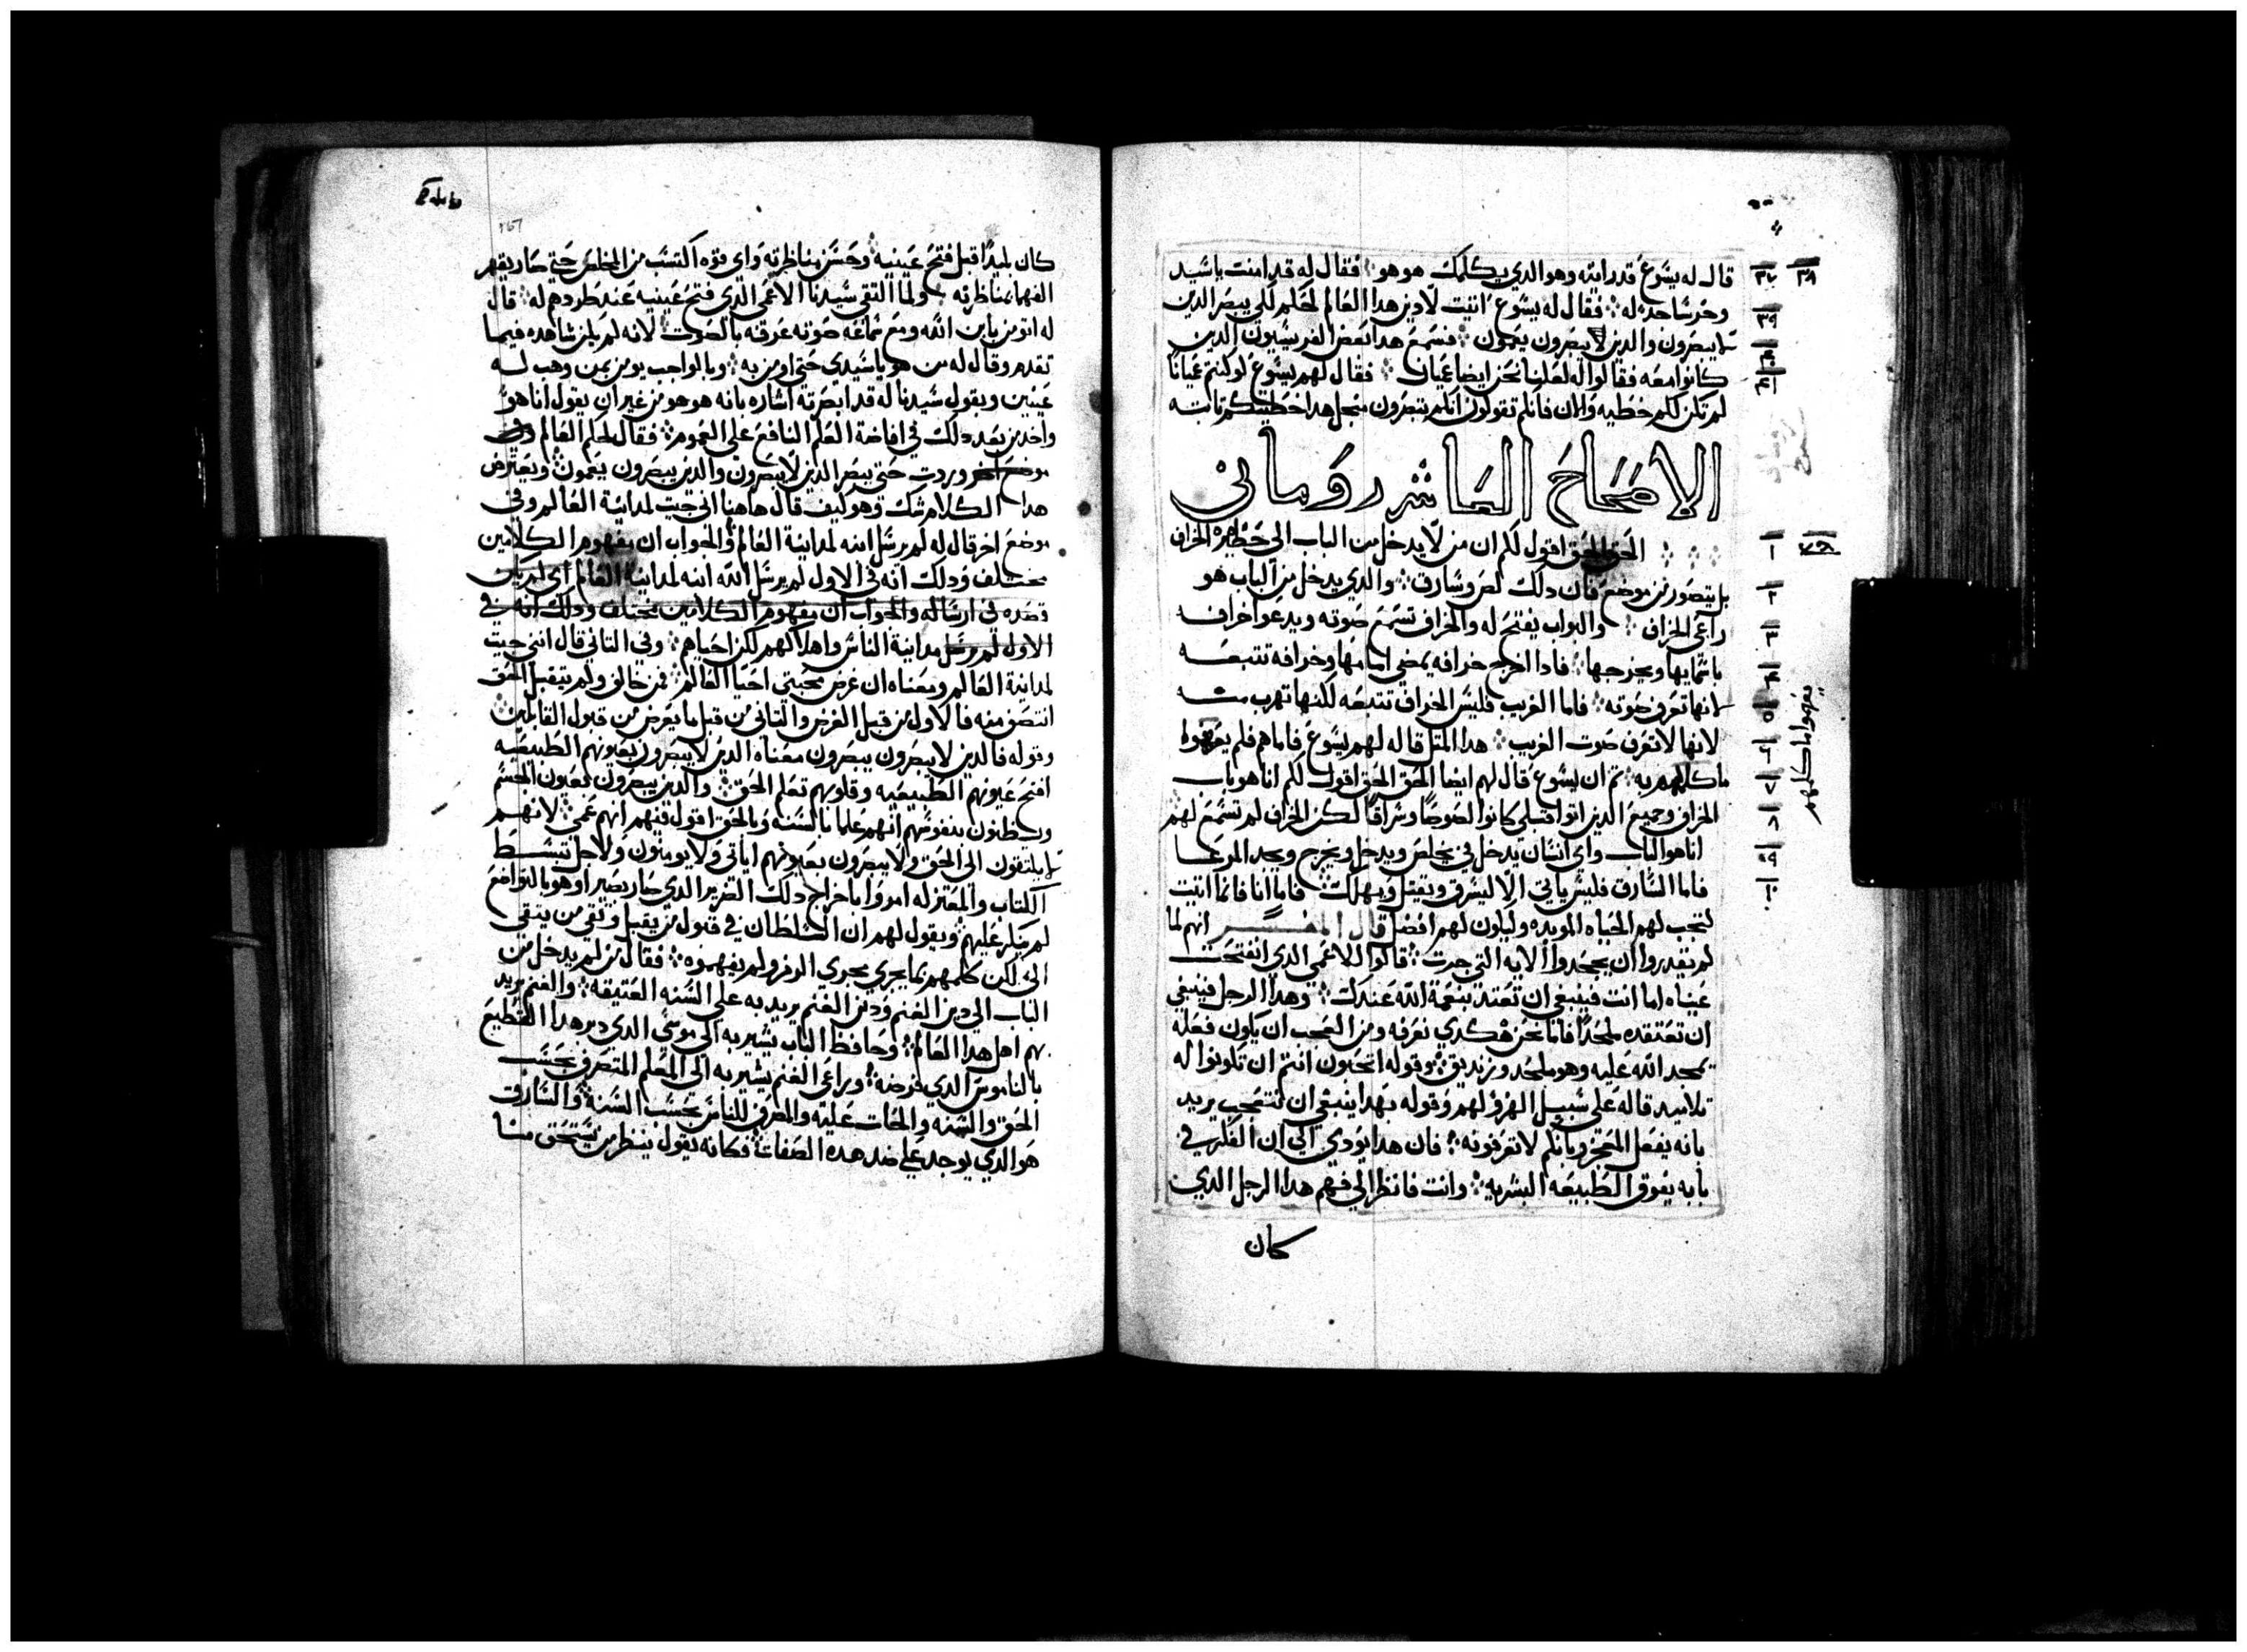 قال له يسوع قد رايته وهو الدي يكلمك هو هو فقال له قد امنت ياسيد
وخر ساجدا له فقال له يسوع اتيت لادين هدا العالم لكي يبصر الدين
لا يبصرون والدين يبصرون يعمون فسمع هدا بعض الفريسيون الدين
كانوا معه فقالوا له لعلنا نحن ايضا عميان فقال لهم يسوع لو كنتم عميانا
لم تكن لكم خطيه والان فانكم تقولون انكم تبصرون منجل هدا خطيتكم تابته
الاصحاح العاشر روماني
الحق الحق اقول لكم ان من لا يدخل من الباب الى حظيرة الخراف
بل يتصور من موضع فان دلك لص وسارق والدي يدخل من الباب هو
راعي الخراف والبواب يفتح له والخراف تسمع صوته ويدعو اخرافه
باسمايها ويخرجها فادا اخرج خرافه يمضي امامها وخرافه تتبعه
لانها تعرف صوته فاما الغريب فليس الخراف تتبعه لكنها تهرب منه
لانها لا تعرف صوت الغريب هدا المثل قاله لهم يسوع فاما هم فلم يفهموا
ما كلمهم به ثم ان يسوع قال لهم ايضا الحق الحق اقول لكم انا هو باب
الخراف وجميع الدين اتوا قبلي كانوا لصوصا وسراقا لكن الخراف لم تسمع لهم
انا هو الباب واي انسان يدخل في يخلص ويدخل ويخرج ويجد المرعا
فاما السارق فليس ياتي الا ليسرق ويقتل ويهلك فاما انا فانما اتيت
لتجب لهم الحياه الموبده وليكون لهم افضل قال المفسر انهم لما
لم يقدروا ان يجحدوا الايه التي جرت قالوا للاعمى الدي انفتحت
عيناه اما انت فينبغي ان تعتد بنعمة الله عندك وهدا الرجل فينبغي
ان تعتقده ملحدا فاننا نحن هكدي نعرفه ومن العجب ان يكون فعله
يمجد الله عليه وهو ملحد وزنديق وقوله اتحبون انتم ان تكونوا له
تلاميد قاله على سبيل الهزو لهم وقوله بهدا ينبغي ان نتعجب يريد
بانه يفعل المعجز وبانكم لا تعرفونه فان هدا يودي الى ان الفكر في
بابه يفوق الطبيعه البشريه وانت فانظر الى فهم هدا الرجل الدي
كان
٣٧ ٣٨
٣٩
٤٠
٤١
١
٢
٣
٤
٥
٦
٧
٨
٩
١٠
يفهموا ما كلمهم
167
كان بليدا قبل فتح عينيه وحسن مناظرته واي قوه اكتسب من المخلص حتى صار يقهر
الفهما بمناظرته ولما التقى سيدنا الاعمى الدي فتح عينيه عند طردهم له قال
له اتومن بابن الله ومع سماعه صوته عرفه بالصوت لانه لم يكن شاهده فيما
تقدم وقال له من هو ياسيدي حتى اومن به وبالواجب يومن بمن وهب له
عينين وبقول سيدنا له قد ابصرته اشاره بانه هو هو من غير ان يقول انا هو
واخد من بعد دلك في افاضة العلم النافع على العموم فقال لحكم العالم وفي
موضع اخر وردت حتى يبصر الدين لا يبصرون والدين يبصرون يعمون ويعترض
هدا الكلام شك وهو كيف قال هاهنا انى جيت لمداينة العالم وفي
موضع اخر قال له لم يرسل ابنه لمداينة العالم والجواب ان مفهوم الكلامين
مختلف ودلك انه في الاول لم يرسل الله ابنه لمداينة العالم اي لم يكن
قصده في ارساله والجواب ان مفهوم الكلامين مختلف ودلك انه في
الاول لم مداينة الناس واهلاكهم لكن احياهم وفي التاني قال انني جيت
لمداينة العالم ومعناه ان غرض محبتي احيا العالم فمن خالف ولم يتقبل الحق
انتصف منه فالاول من قبل الغرض والتاني من قبل ما يعرض من قبول القابلين
وقوله فالدين لا يبصرون يبصرون معناه الدين لا يبصرون بعيونهم الطبيعيه
افتح عيونهم الطبيعيه وقلوبهم تعلم الحق والدين يبصرون بعيون الجسم
ويظنون بنفوسهم انهم علما بالسنه وبالحق اقول فيهم انهم عمي لانهم
لا يلتفون الى الحق ولا يبصرون بعيونهم اياتي ولا يومنون ولاجل تبسط
الكتاب والمعتزله امروا باخراج دلك الضرير الدي صار بصيرا وهو بالتواضع
لم ينكر عليهم ويقول لهم ان السلطان في قبول من يقبل ونفي من ينفى
الى لكن كلمهم بما يجري مجرى الرمز ولم يفهموه فقال من لم يدخل من
الباب الى دير الغنم ودير الغنم يريد به على السنه العتيقه والغنم يريد
بهم اهل هدا العالم وحافظ الباب يشير به الى موسى الدي دبر هدا القطيع
بالناموس الدي فرضه وراعي الغنم يشير به الى المعلم المتصرف بحسب
الحق والسنه والحات عليه والمعرف للناس بحسب السنه والسارق
هو الدي يوجد على ضد هده الصفات فكانه يقول ينظر من يستحق منا